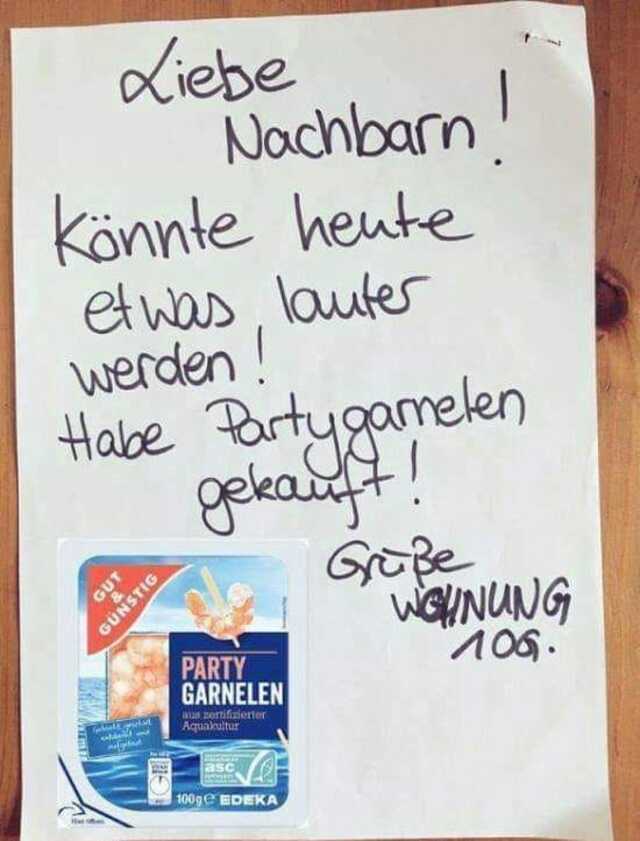 Liebe
Nachbarn!
Könnte heute
etwas lauter
werden!
Habe Partygarnelen
gekauft!
Grüße
WOHNUNG
10G.
GUT
&
GÜNSTIG
PARTY
GARNELEN
aus zertifizierter
Aquakultur
asc
100g e EDEKA